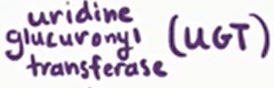 uridine
glucuronyl (UGT)
transferase